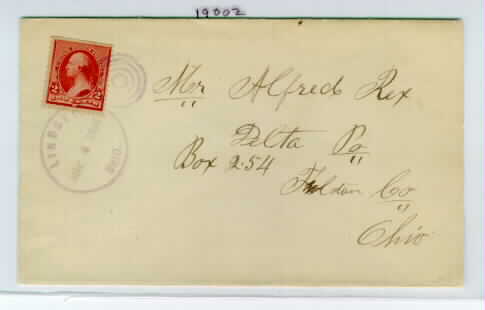 19002
Mr Alfred Rex
Delta Po
Box 254
Fulton Co
Ohio